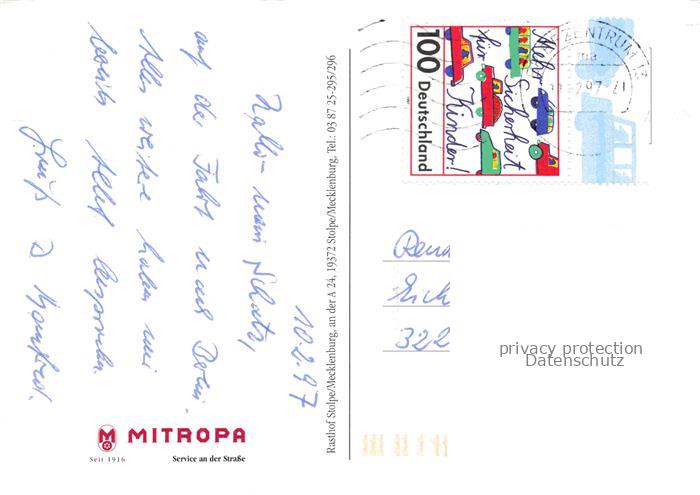 10.2.97
Hallo mein Schatz,
auf der Fahrt nach Berlin.
Alles weitere haben wir
bereits selbst besprochen.
Gruß
Manfred.
Rasthof Stolpe/Mecklenburg, an der A 24, 19372 Stolpe/Mecklenburg, Tel.: 03 87 25-295/296
MITROPA
Seit 1916
Service an der Straße
100 Deutschland
Mehr
Sicherheit
für
Kinder!
ZENTRUM
Rena
322
privacy protection
Datenschutz